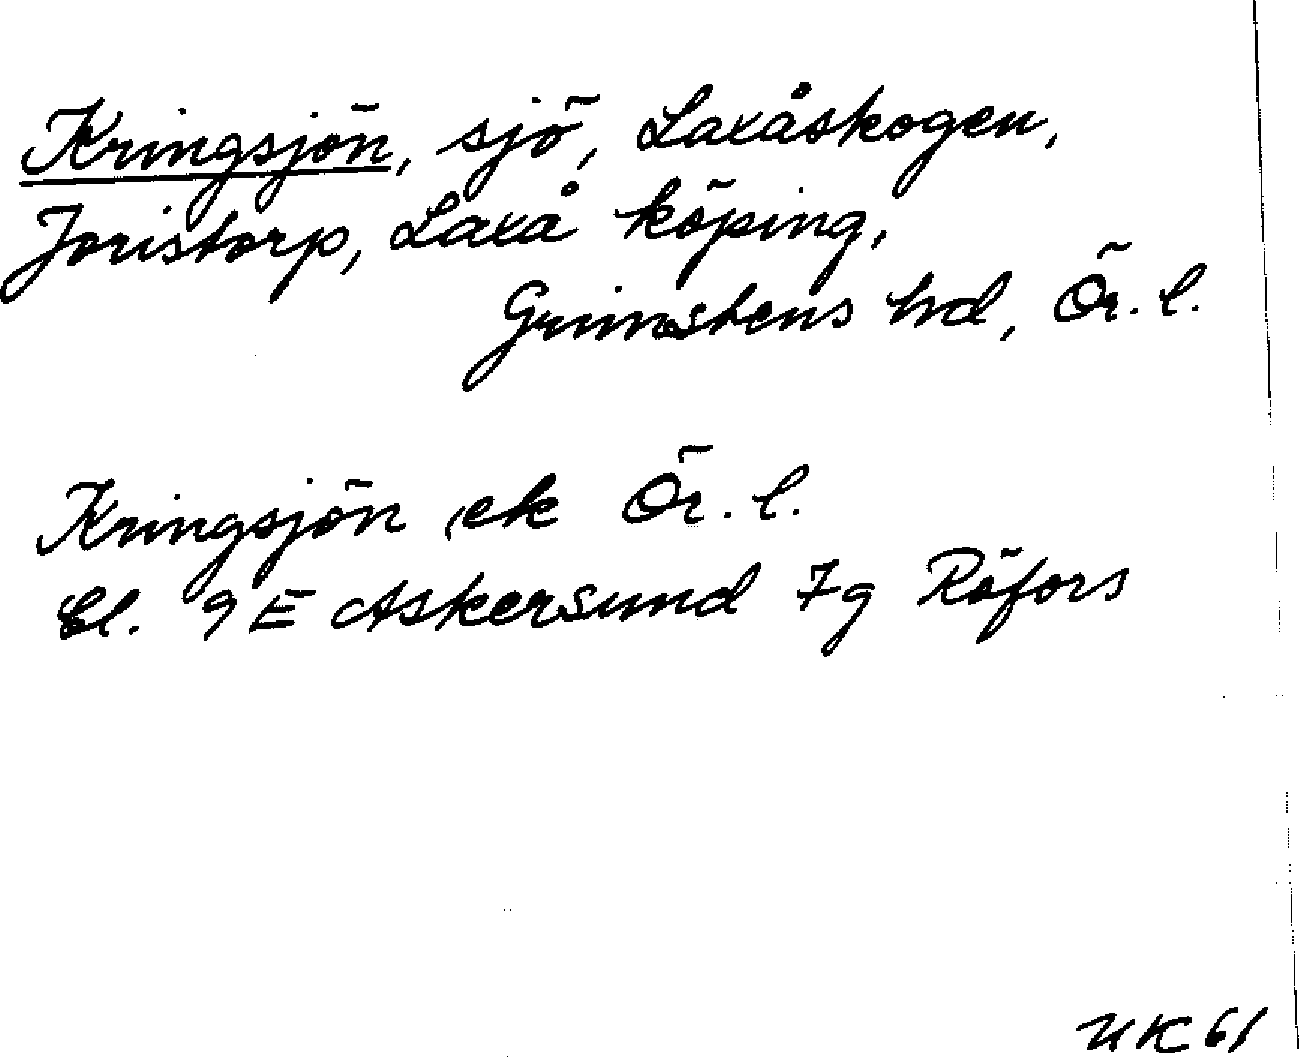 Kringsjön, sjö, Laxåskogen,
Joristorp, Laxå köping,
Grimstens hd, Ör. l.
Kringsjön, ek Ör. l.
bl. 9E Askersund 7g Röfors
UK 61